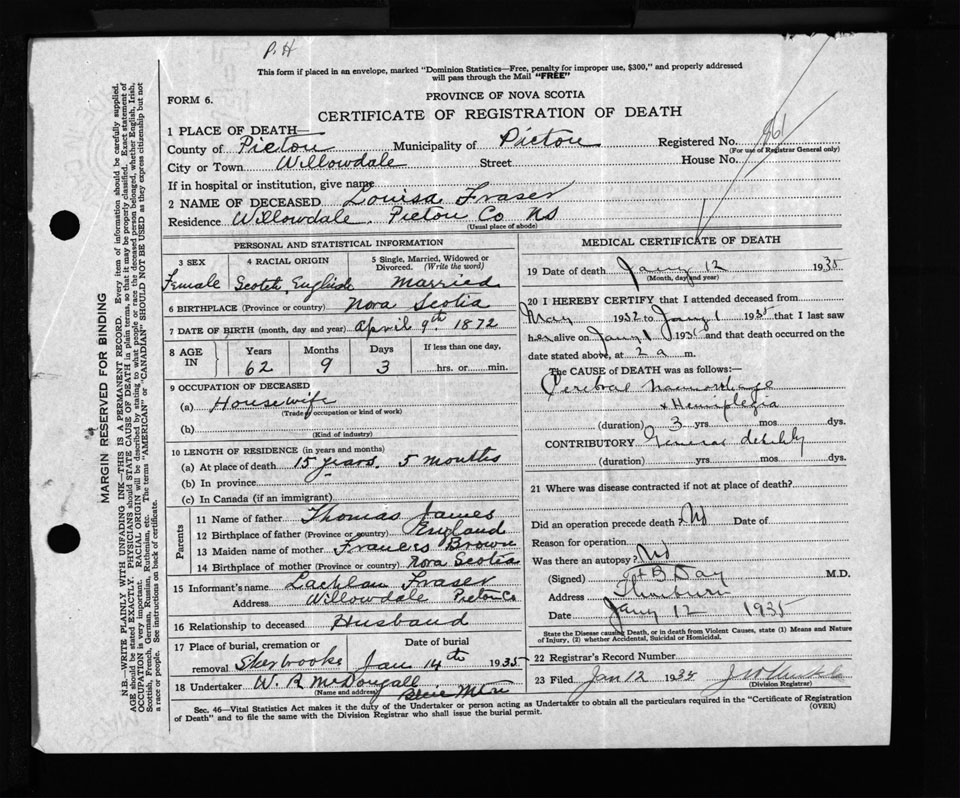 P.H
This form if placed in an envelope, marked "Dominion Statistics—Free, penalty for improper use, $300," and properly addressed
will pass through the Mail "FREE"
PROVINCE OF NOVA SCOTIA
FORM 6.
CERTIFICATE OF REGISTRATION OF DEATH
1 PLACE OF DEATH—
County of Pictou Municipality of Pictou Registered No. 961
(For use of Registrar General only)
City or Town Willowdale Street House No.
If in hospital or institution, give name
2 NAME OF DECEASED Louisa Fraser
Residence Willowdale. Pictou Co NS
(Usual place of abode)
PERSONAL AND STATISTICAL INFORMATION
3 SEX 4 RACIAL ORIGIN 5 Single, Married, Widowed or Divorced. (Write the word)
Female Scotch, English Married
6 BIRTHPLACE (Province or Country) Nova Scotia
7 DATE OF BIRTH (month, day and year) April 9th. 1872
8 AGE IN Years Months Days If less than one day,
62 9 3 hrs. or min.
9 OCCUPATION OF DECEASED
(a) Housewife
(Trade, occupation or kind of work)
(b)
(Kind of industry)
10 LENGTH OF RESIDENCE (in years and months)
(a) At place of death 15 years. 5 months
(b) In province
(c) In Canada (if an immigrant)
Parents
11 Name of father Thomas James
12 Birthplace of father (Province or country) England
13 Maiden name of mother Frances Brown
14 Birthplace of mother (Province or country) Nova Scotia
15 Informant's name Lachlan Fraser
Address Willowdale Pictou Co
16 Relationship to deceased Husband
17 Place of burial, cremation or removal Sherbrooke Date of burial Jan 14th 1935
18 Undertaker W. R McDougall
(Name and address)
MEDICAL CERTIFICATE OF DEATH
19 Date of death Jany 12 1935
(Month, day and year)
20 I HEREBY CERTIFY that I attended deceased from
May 1932 to Jany 1 1935 that I last saw
her alive on Jany 1 193 and that death occurred on the
date stated above, at 2 a m.
The CAUSE of DEATH was as follows:—
Cerebral haemorrhage
& Hemiplegia
(duration) 3 yrs. mos. dys.
CONTRIBUTORY General debility
(duration) yrs. mos. dys.
21 Where was disease contracted if not at place of death?
Did an operation precede death? No Date of
Reason for operation
Was there an autopsy? No
(Signed) B Day M.D.
Address Thorburn
Date Jany 12 1935
State the Disease causing Death, or in death from Violent Causes, state (1) Means and Nature
of Injury, (2) whether Accidental, Suicidal or Homicidal.
22 Registrar's Record Number
23 Filed Jan 12 1935
(Division Registrar)
Sec. 46—Vital Statistics Act makes it the duty of the Undertaker or person acting as Undertaker to obtain all the particulars required in the "Certificate of Registration
of Death" and to file the same with the Division Registrar who shall issue the burial permit.
(OVER)
MARGIN RESERVED FOR BINDING
N.B.—WRITE PLAINLY WITH UNFADING INK—THIS IS A PERMANENT RECORD. Every item of information should be carefully supplied.
AGE should be stated EXACTLY. PHYSICIANS should STATE CAUSE OF DEATH in plain terms, so that it may be properly classified. Exact statement of
OCCUPATION is very important. RACIAL ORIGIN will be described by stating to what people or race the deceased person belonged, whether English, Irish,
Scottish, French, German, Russian, Ruthenian, etc. The terms "AMERICAN" or "CANADIAN" SHOULD NOT BE USED as they express citizenship but not
a race or people. See instructions on back of certificate.